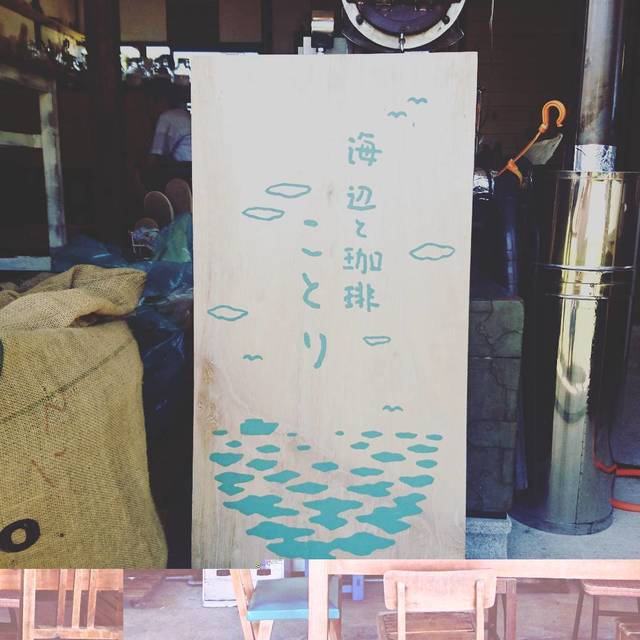 海辺と珈琲
ことり